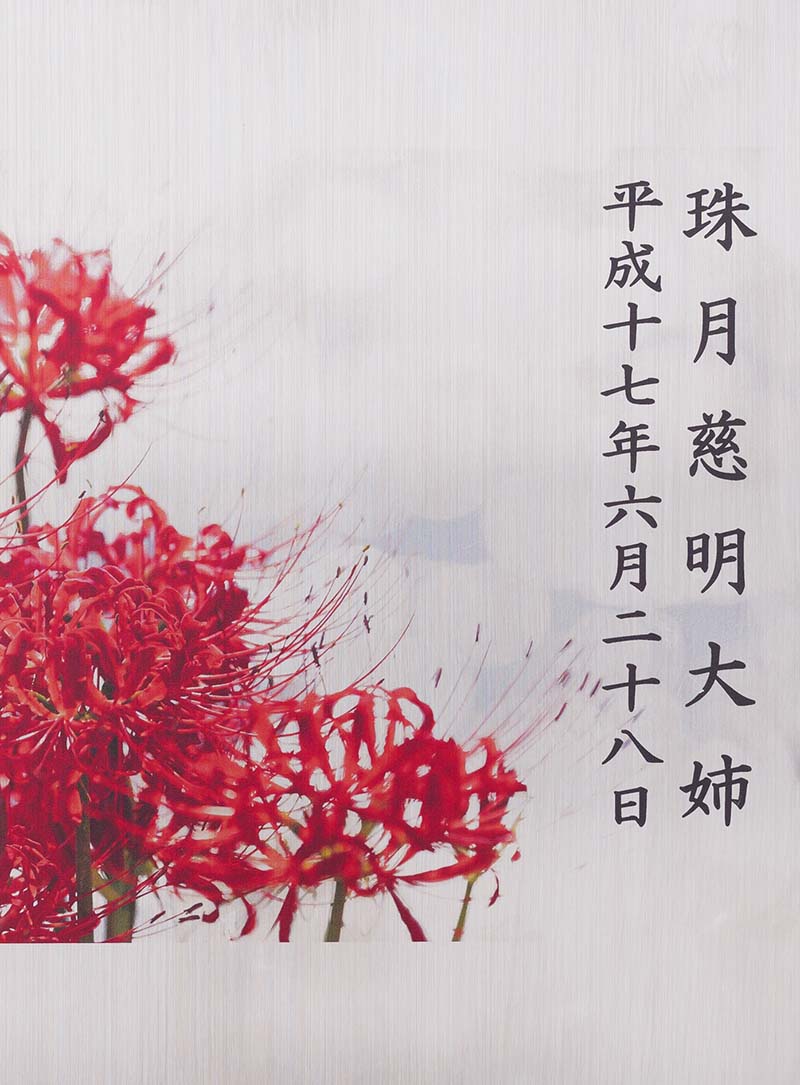 珠月慈明大姉
平成十七年六月二十八日